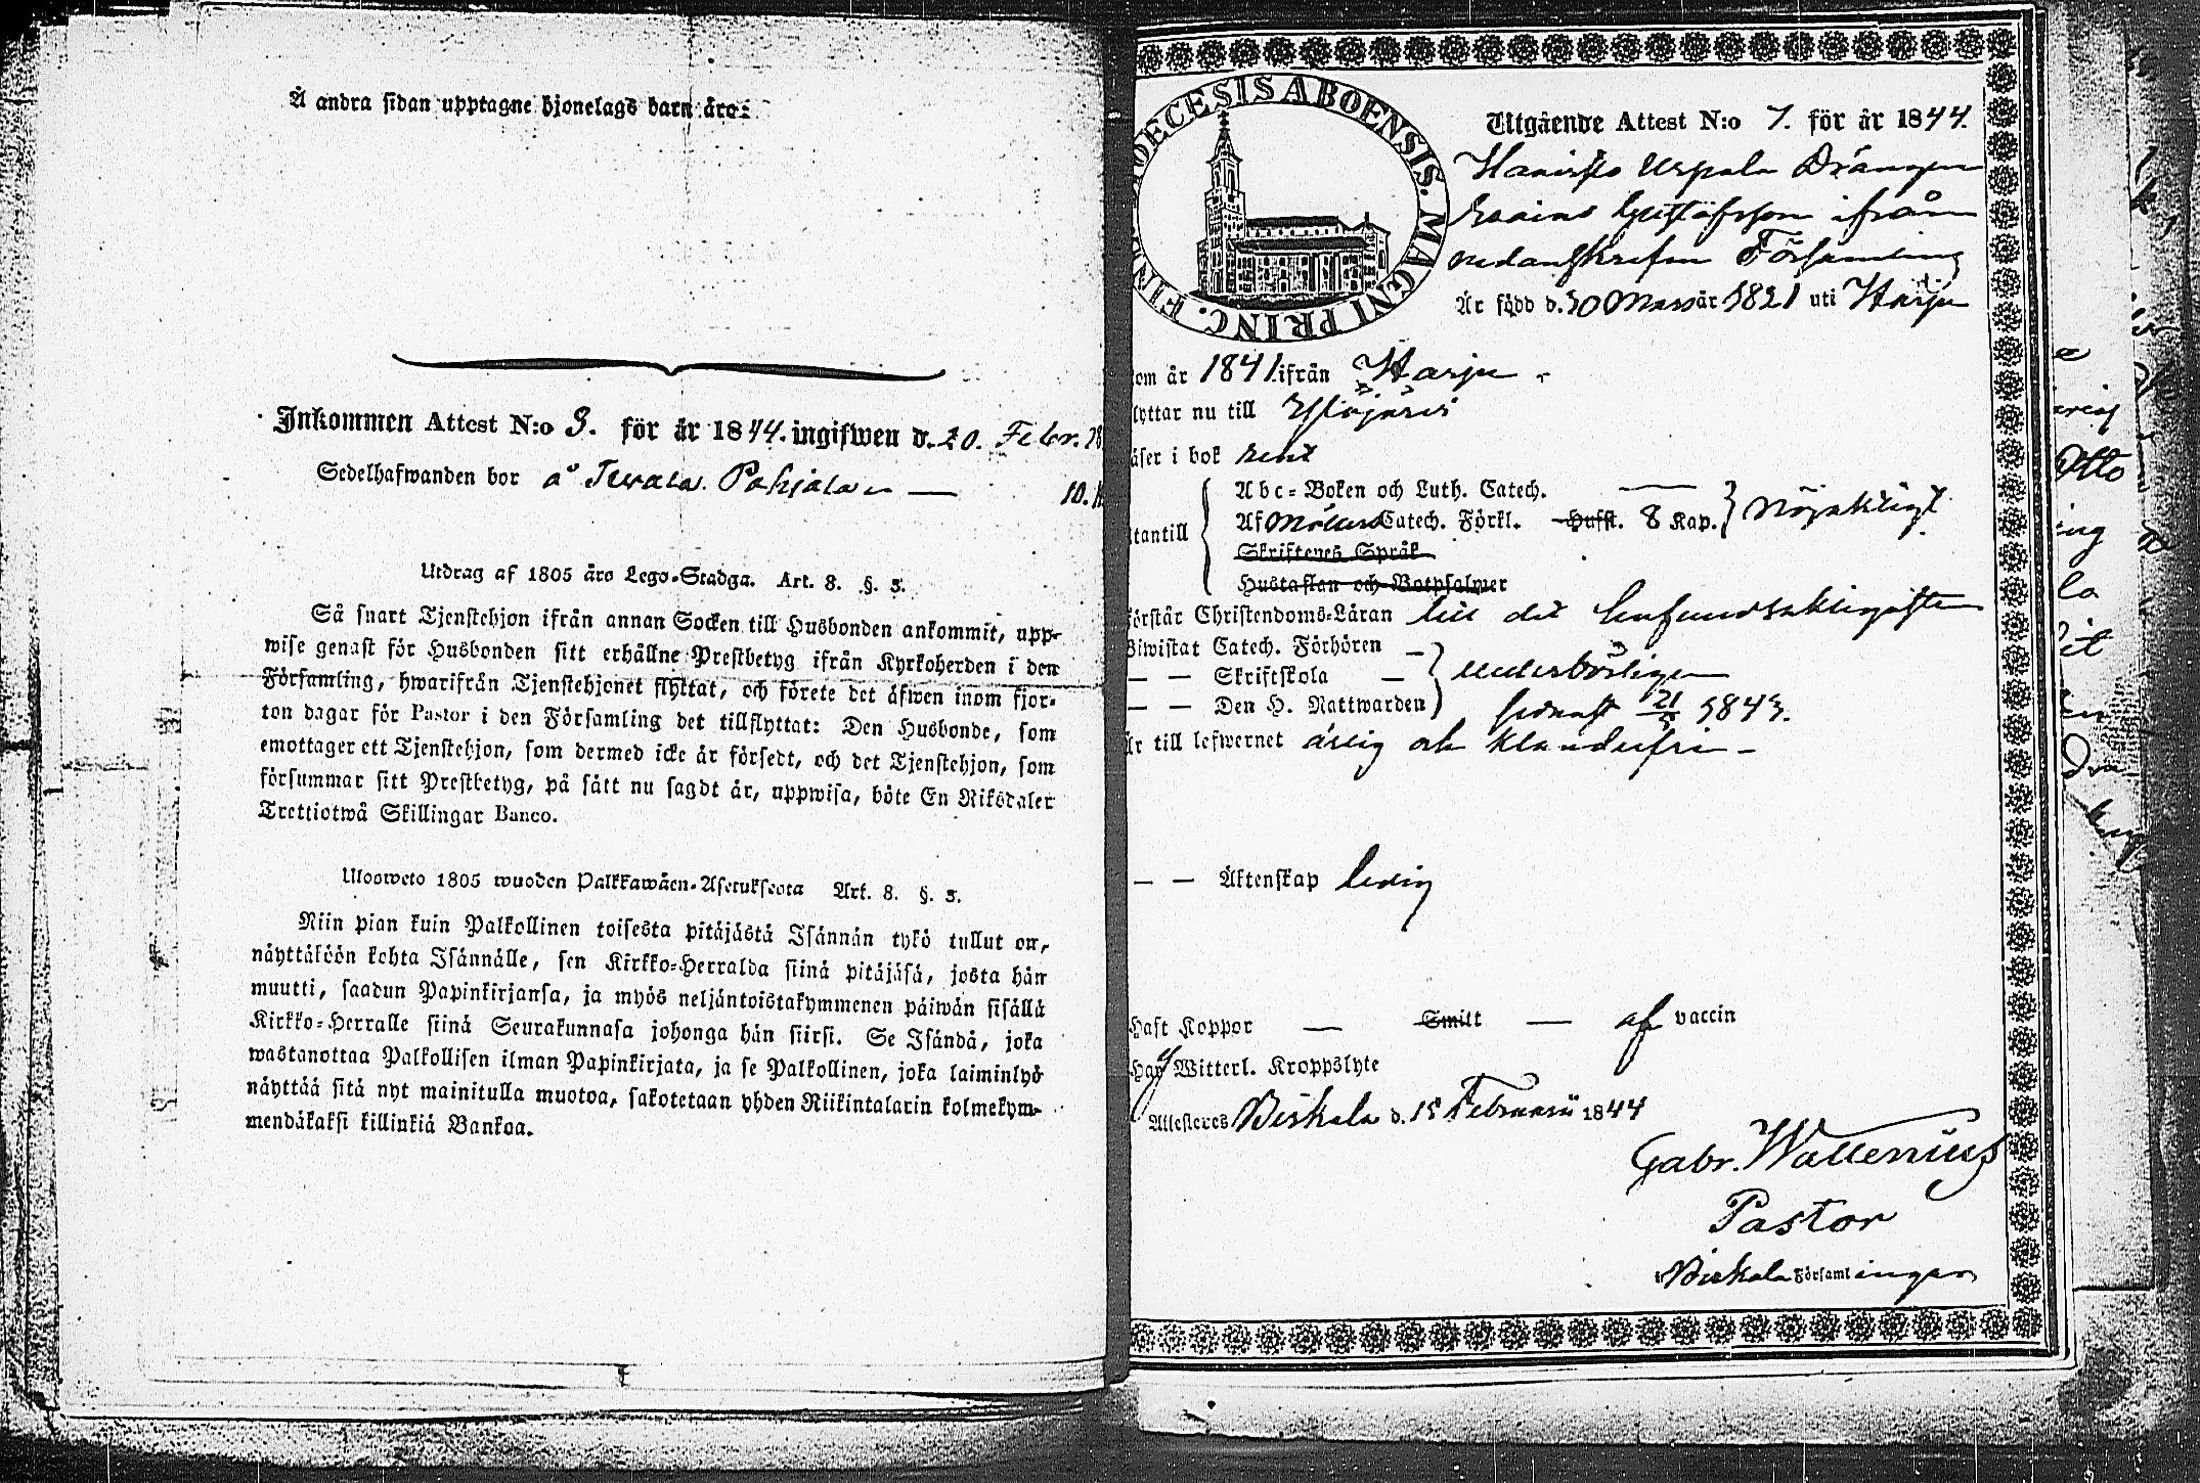 Å andra sidan upptagne hjonelags barn äro:
Inkommen Attest N:o 3. för år 1844. ingifwen d. 20. Febr. 18
Sedelhafwanden bor å Pohjola
10.
Utdrag af 1805 års Lego-Stadga. Art. 8. §. 3.
Så snart Tjenstehjon ifrån annan Socken till Husbonden ankommit, upp-
wise genast för Husbonden sitt erhållne Prestbetyg ifrån Kyrkoherden i den
Församling, hwarifrån Tjenstehjonet flyttat, och förete det äfwen inom fjor-
ton dagar för Pastor i den Församling det tillflyttat: Den Husbonde, som
emottager ett Tjenstehjon, som dermed icke är försedt, och det Tjenstehjon, som
försummar sitt Prestbetyg, på sätt nu sagdt är, uppwisa, böte En Riksdaler
Trettiotwå Skillingar Banco.
Ulosweto 1805 wuoden Palkkawäen-Asetuksesta Art. 8. §. 3.
Niin pian kuin Palkollinen toisesta pitäjästä Isännän tykö tullut on,
näyttäköön kohta Isännälle, sen Kirkko-Herralda siinä pitäjäsä, josta hän
muutti, saadun Papinkirjansa, ja myös neljäntoistakymmenen päiwän sisällä
Kirkko-Herralle siinä Seurakunnasa johonga hän siirsi. Se Isändä, joka
wastanottaa Palkollisen ilman Papinkirjata, ja se Palkollinen, joka laiminlyö
näyttää sitä nyt mainitulla muotoa, sakotetaan yhden Riikintalarin kolmekym-
mendäkaksi killinkiä Bankoa.
DIOECESIS ABOENSIS. MAGNI PRINC. FIN
Utgående Attest N:o 7. för år 1844.
Drängen
Gustafsson ifrån
nedanskrefne Församling
Är född d. 30 Mars år 1821 uti Harju
om år 1841. ifrån Harju
lyttar nu till Ylöjärvi
äser i bok rent
tantill
Abc-Boken och Luth. Catech.
Af Möllers Catech. Förkl. Hufst. 8 Kap. Nöjaktligt
Skriftenes Språk
Hustaflan och Botpsalmer
örstår Christendoms-Läran till det
Biwistat Catech. Förhören
— — Skriftskola — wederbörligen
— — Den H. Nattwarden senast 21/5 1843.
Är till lefwernet ärlig och klanderfri —
— — Äktenskap ledig
Haft Koppor — Smitt — af vaccin
Har ej Witterl. Kroppslyte
Attesteres Birkala d. 15 Februarii 1844
Gabr. Wallenius
Pastor
i Birkala Församlingar
Otto